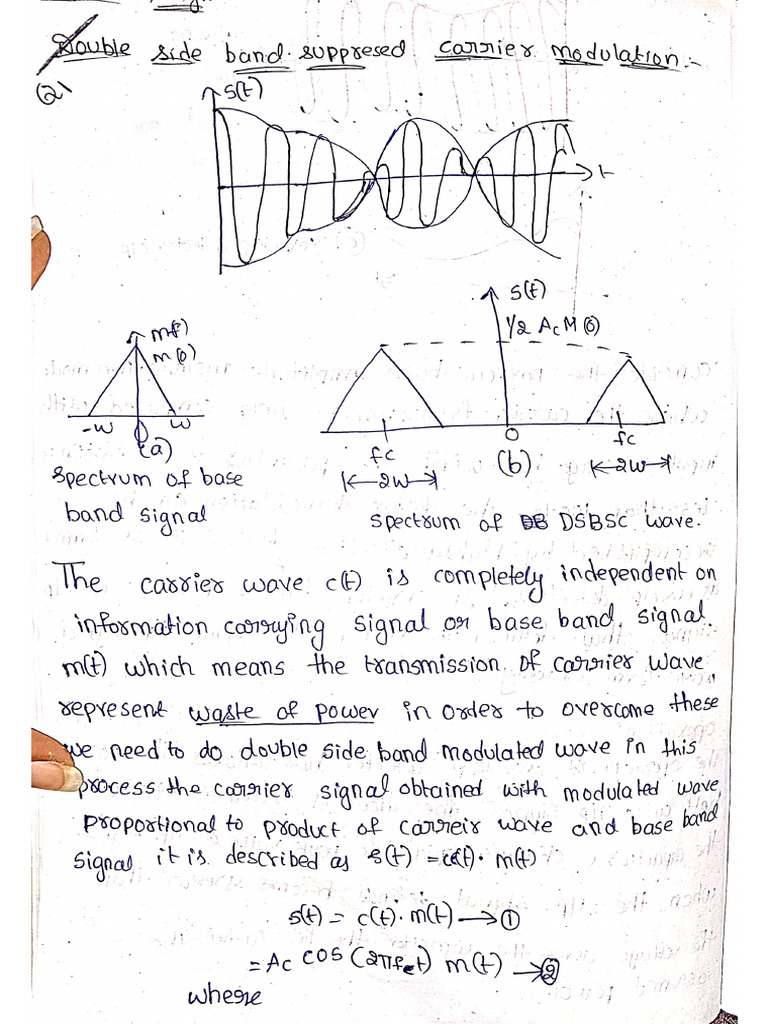 Double side band suppresed carrier modulation:-
(2)
s(t)
t
m(f)
m(o)
-w
o
w
(a)
spectrum of base
band signal
s(f)
1/2 AcM(o)
fc
o
fc
2w
(b)
2w
spectrum of DSBSC wave.
The carrier wave c(t) is completely independent on
information carrying signal or base band. signal.
m(t) which means the transmission of carrier wave
represent waste of power in order to overcome these
we need to do double side band modulated wave in this
process the carrier signal obtained with modulated wave,
proportional to product of carreir wave and base band
signal it is described as s(t) = c(t). m(t)
s(t) = c(t). m(t) → ①
= Ac cos (2πfct) m(t) → ②
where